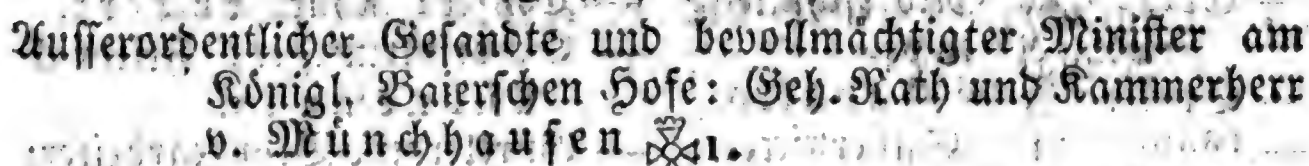 Ausserordentlicher Gesandte und bevollmächtigter Minister am
Königl. Baierschen Hofe: Geh. Rath und Kammerherr
v. Münchhausen 1.